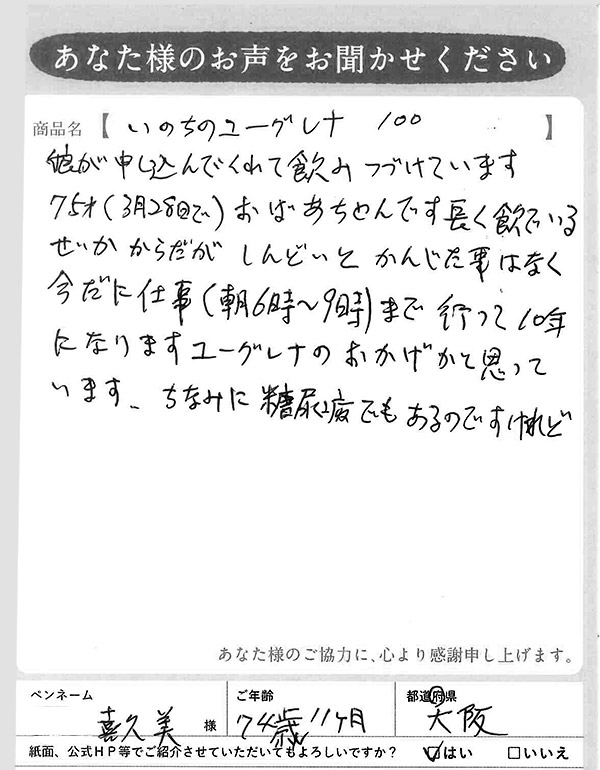 あなた様のお声をお聞かせください
商品名【 いのちのユーグレナ 100 】
娘が申し込んでくれて飲みつづけています
75才(3月28日で)おばあちゃんです長く飲でいる
せいか からだが しんどいと かんじた事はなく
今だに仕事(朝6時〜9時)まで 行って10年
になりますユーグレナのおかげかと思って
います、ちなみに糖尿病でもあるのですけれど
あなた様のご協力に、心より感謝申し上げます。
ペンネーム ご年齢 都道府県
喜久美 様 74歳11ヶ月 大阪
紙面、公式HP等でご紹介させていただいてもよろしいですか? ☑はい □いいえ